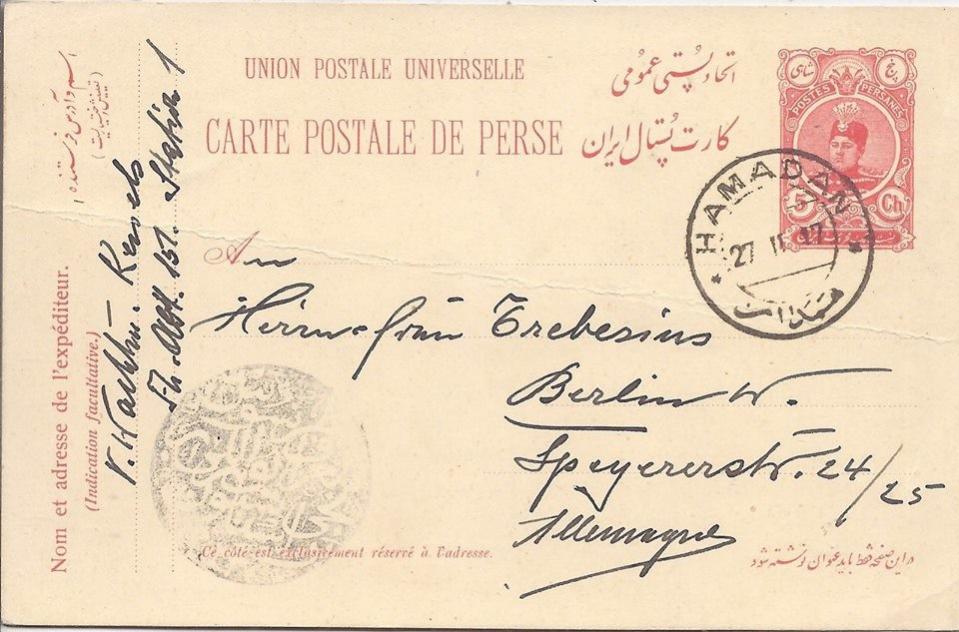 UNION POSTALE UNIVERSELLE
اتحاد پستی عمومی
CARTE POSTALE DE PERSE
کارت پستال ایران
شاهی
پنج
POSTES PERSANES
5 Ch
HAMADAN
27 II 17
همدان
An
Herrn
Trebesius
Berlin W.
Speyererstr. 24/25
Allemagne
Ce côté est exclusivement réservé à l'adresse.
در این صفحه فقط باید عنوان نوشته شود
Nom et adresse de l'expéditeur.
(Indication facultative.)
اسم و آدرس فرستنده
Station 1